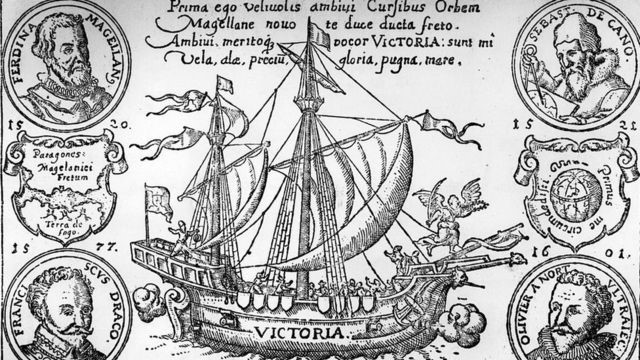 Prima ego velivolis ambivi Cursibus Orbem
Magellane novo te duce ducta freto.
Ambivi, meritoq₃ vocor VICTORIA: sunt mi
Vela, alæ, preciu, gloria, pugna, mare.
FERDINA. MAGELLANS
1520.
SEBAST. DE CANO.
1521
Paragones:
Magelanici
Fretum
Terra de
Fogo.
Primus me circumdedisti
1577.
FRANCISCVS DRACO.
1601.
OLIVIER A NOR
VLTRAIEC.
VICTORIA.